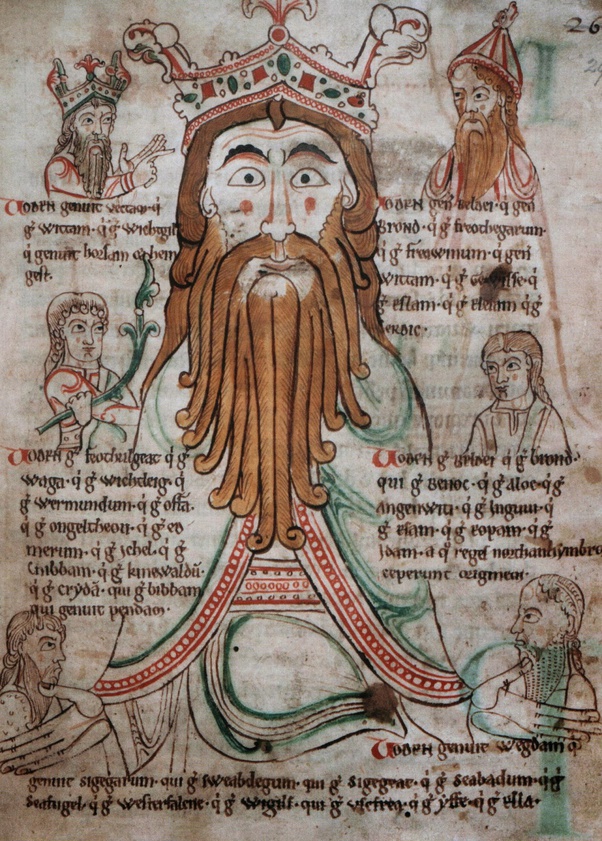 26
Woden genuit vectam · q̄
g̃ wittam · q̄ g̃ wichtgil
q̄ genuit horsam & hen
gest.
Woden geñ Beldei · q̄ geñ
Brond · q̄ g̃ freothegarum ·
q̄ g̃ frewinum · q̄ geñ
wittam · q̄ g̃ Gewisse · q̄
g̃ eslam · q̄ g̃ eleiam q̄ g̃
Cerdic ·
Woden g̃ feothulgeat q̄ g̃
waga · q̄ g̃ wichtleig · q̄
g̃ wermundum · q̄ g̃ offa.
q̄ g̃ ongeltheou · q̄ g̃ eo
merum · q̄ g̃ ichel · q̄ g̃
Cnibbam · q̄ g̃ kinewaldū ·
q̄ g̃ crydā · qui g̃ bibbam
qui genuit pendam ·
Woden g̃ Beldei · q̄ g̃ brond ·
qui g̃ Benoc · q̄ g̃ aloc · q̄ g̃
Angenwit · q̄ g̃ Inguui · q̄
g̃ esam · q̄ g̃ eopam · q̄ g̃
Idam · a q̄ reges northanhymbro
ceperunt originem ·
Woden genuit wegdam q̄
genuit sigegarum · qui g̃ sweabdegum · qui g̃ sigegeat · q̄ g̃ seabadum · q̄ g̃
seafugel · q̄ g̃ westerfalcne · q̄ g̃ wigilf · qui g̃ uscfrea · q̄ g̃ yffe · q̄ g̃ ella ·